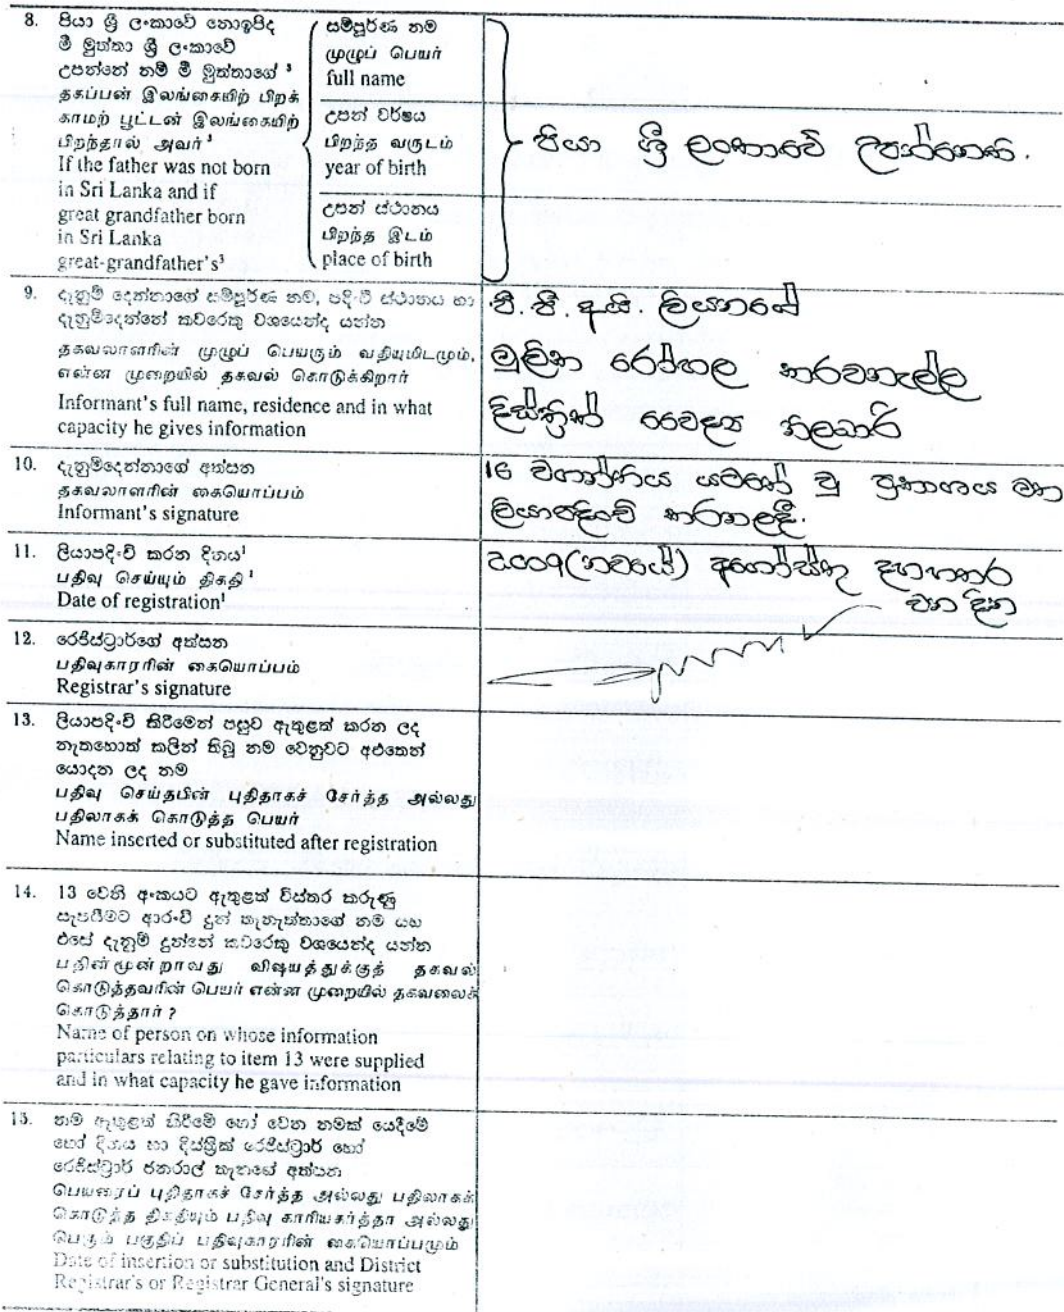 8. පියා ශ්‍රී ලංකාවේ නොඉපිද
මී මුත්තා ශ්‍රී ලංකාවේ
උපන්නේ නම් මී මුත්තාගේ ³
தகப்பன் இலங்கையிற் பிறக்
காமற் பூட்டன் இலங்கையிற்
பிறந்தால் அவர் ³
If the father was not born
in Sri Lanka and if
great grandfather born
in Sri Lanka
great-grandfather's³
සම්පූර්ණ නම
முழுப் பெயர்
full name
උපන් වර්ෂය
பிறந்த வருடம்
year of birth
උපන් ස්ථානය
பிறந்த இடம்
place of birth
පියා ශ්‍රී ලංකාවේ උපන්නෙකි.
9. දැනුම් දෙන්නාගේ සම්පූර්ණ නම, පදිංචි ස්ථානය හා
දැනුම්දෙන්නේ කවරෙකු වශයෙන්ද යන්න
தகவலாளரின் முழுப் பெயரும் வதியுமிடமும்,
என்ன முறையில் தகவல் கொடுக்கிறார்
Informant's full name, residence and in what
capacity he gives information
පී. පී. අයි. ලියනගේ
මූලික රෝහල කරවනැල්ල
දිස්ත්‍රික් වෛද්‍ය නිලධාරි
10. දැනුම්දෙන්නාගේ අත්සන
தகவலாளரின் கையொப்பம்
Informant's signature
16 වගන්තිය යටතේ වූ ප්‍රකාශය මත
ලියාපදිංචි කරනලදී.
11. ලියාපදිංචි කරන දිනය¹
பதிவு செய்யும் திகதி ¹
Date of registration¹
2009(නවයේ) අගෝස්තු දහහතර
වන දින
12. රෙජිස්ට්‍රාර්ගේ අත්සන
பதிவுகாரரின் கையொப்பம்
Registrar's signature
13. ලියාපදිංචි කිරීමෙන් පසුව ඇතුළත් කරන ලද
නැතහොත් කලින් තිබූ නම වෙනුවට අළුතෙන්
යොදන ලද නම
பதிவு செய்தபின் புதிதாகச் சேர்த்த அல்லது
பதிலாகக் கொடுத்த பெயர்
Name inserted or substituted after registration
14. 13 වෙනි අංකයට ඇතුළත් විස්තර කරුණු
සැපයීමට ආරංචි දුන් තැනැත්තාගේ නම සහ
එසේ දැනුම් දුන්නේ කවරෙකු වශයෙන්ද යන්න
பதின்மூன்றாவது விஷயத்துக்குத் தகவல்
கொடுத்தவரின் பெயர் என்ன முறையில் தகவலைக்
கொடுத்தார் ?
Name of person on whose information
particulars relating to item 13 were supplied
and in what capacity he gave information
15. නම ඇතුළත් කිරීමේ හෝ වෙන නමක් යෙදීමේ
හෝ දිනය හා දිස්ත්‍රික් රෙජිස්ට්‍රාර් හෝ
රෙජිස්ට්‍රාර් ජනරාල් තැනගේ අත්සන
பெயரைப் புதிதாகச் சேர்த்த அல்லது பதிலாகக்
கொடுத்த திகதியும் பதிவு காரியகர்த்தா அல்லது
பெரும் பகுதிப் பதிவுகாரரின் கையொப்பமும்
Date of insertion or substitution and District
Registrar's or Registrar General's signature